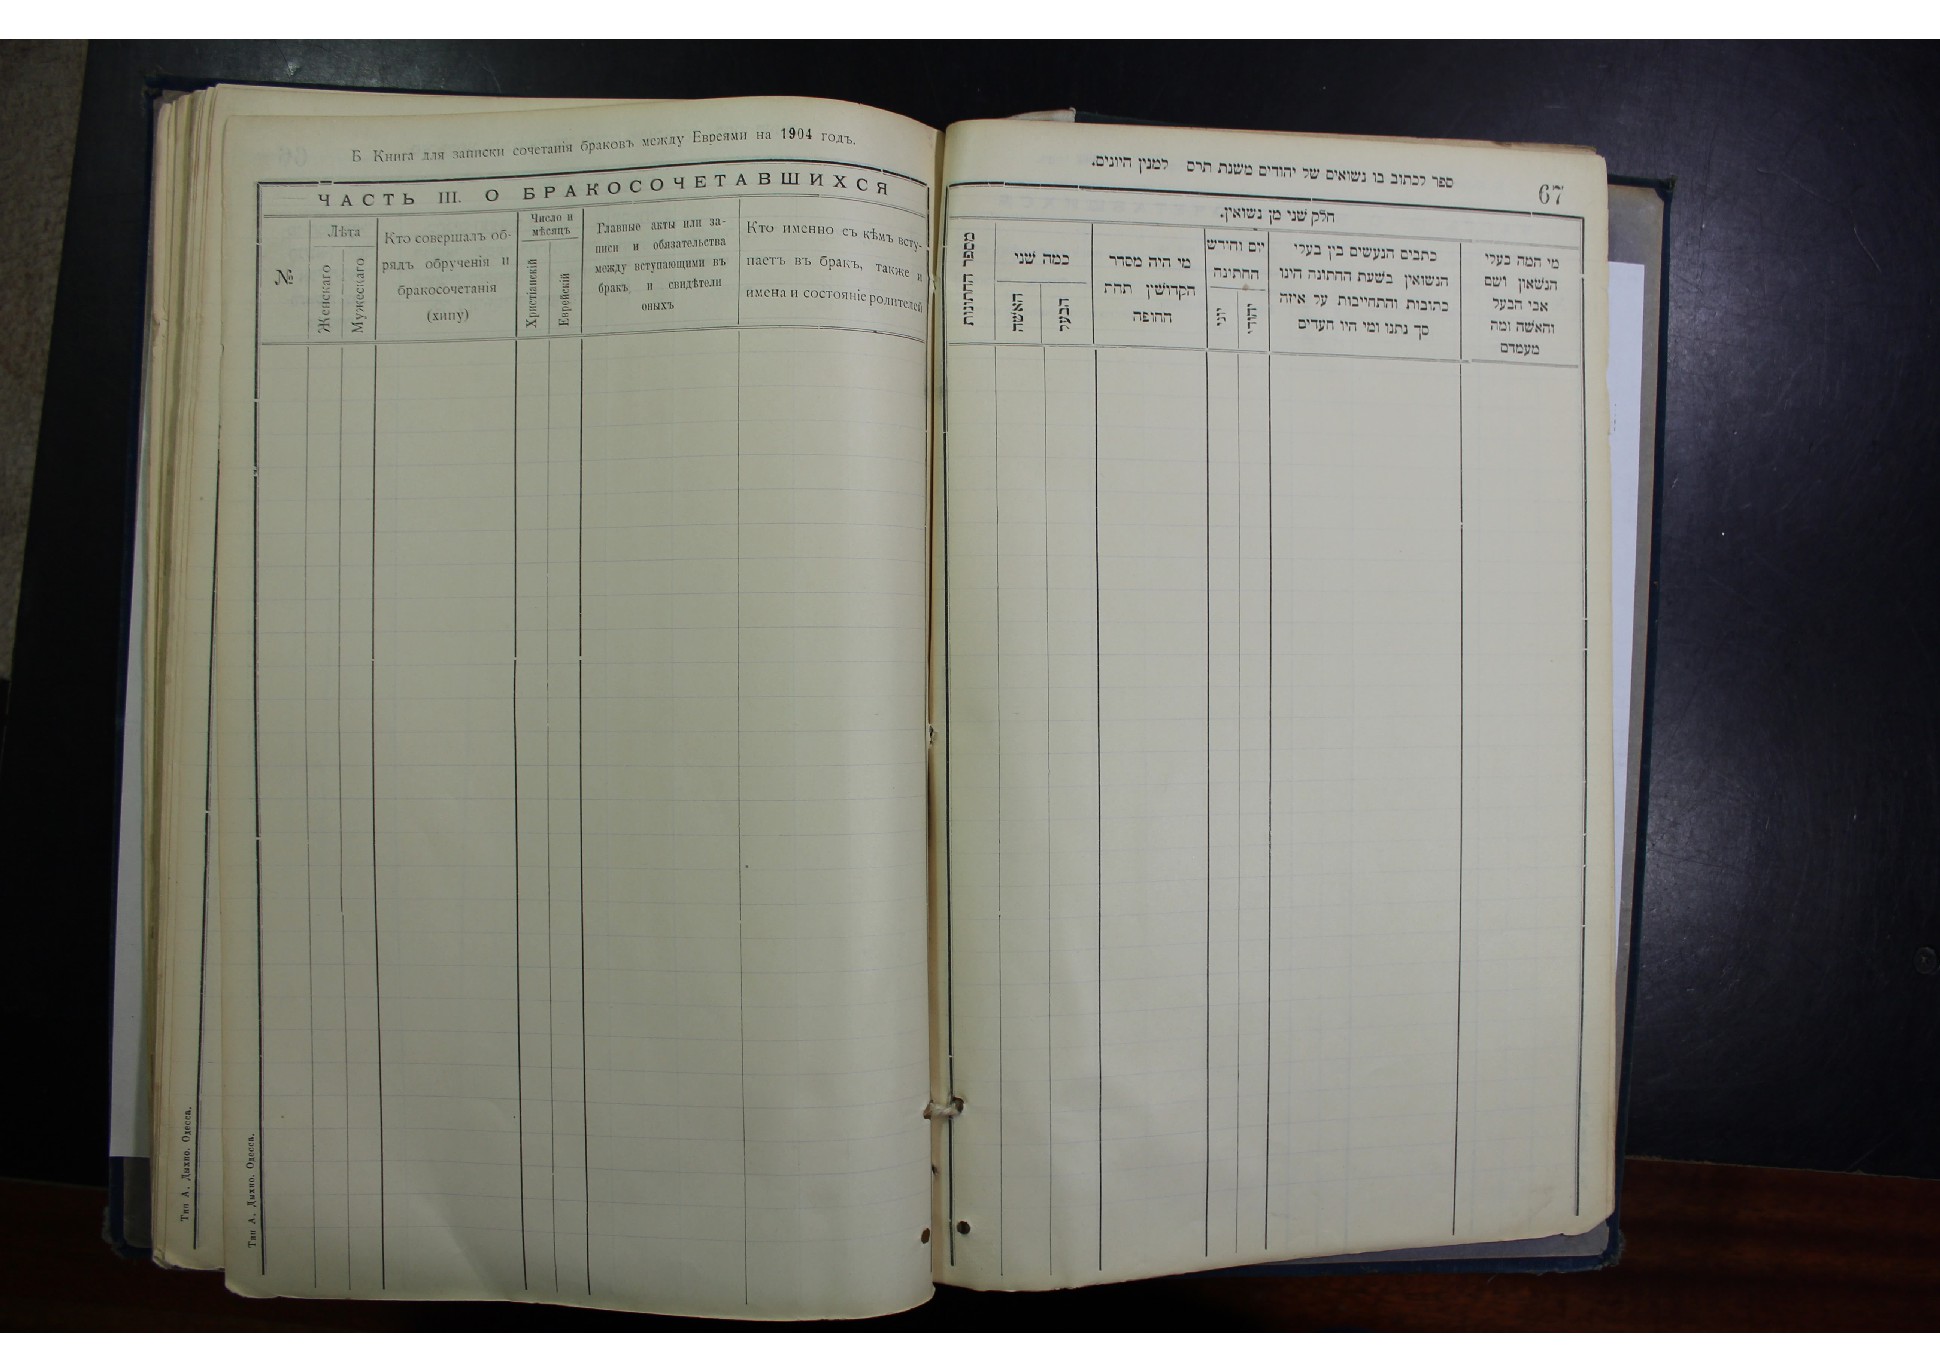 Б Книга для записки сочетанія браковъ между Евреями на 1904 годъ.
ЧАСТЬ III. О БРАКОСОЧЕТАВШИХСЯ
№
Лѣта
Женскаго
Мужескаго
Кто совершалъ об-
рядъ обрученія и
бракосочетанія
(хипу)
Число и
мѣсяцъ
Христіанскій
Еврейскій
Главные акты или за-
писи и обязательства
между вступающими въ
бракъ и свидѣтели
оныхъ
Кто именно съ кѣмъ всту-
паетъ въ бракъ, также и
имена и состояніе родителей
Тип А. Дыхно. Одесса.
Тип А. Дыхно. Одесса.
ספר לכתוב בו נשואים של יהודים משנת תרס למנין היונים.
67
חלק שני מן נשואין.
מי המה בעלי
הנשאון ושם
אבי הבעל
והאשה ומה
מעמדם
כתבים הנעשים בין בעלי
הנשואין בשעת החתונה הינו
כתובות והתחייבות על איזה
סך נתנו ומי היו העדים
יום וחידש
החתינה
יהודי
יוני
מי היה מסדר
הקדושין תחת
החופה
כמה שני
הבעל
האשה
מספר החתונות